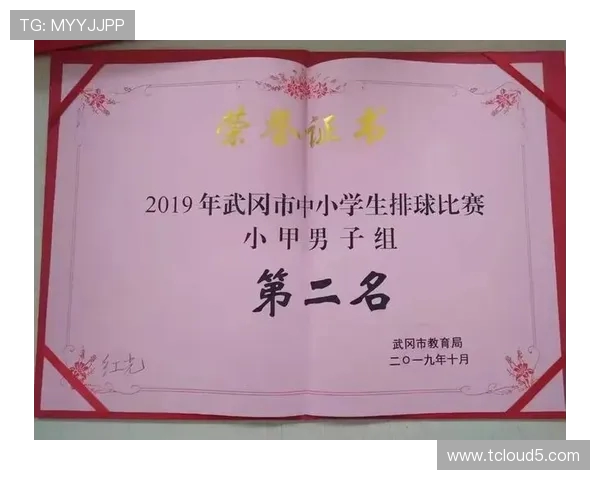 TG: MYYJJPP
荣誉证书
2019年武冈市中小学生排球比赛
小甲男子组
第二名
武冈市教育局
二〇一九年十月
红光
www.tcloud5.com